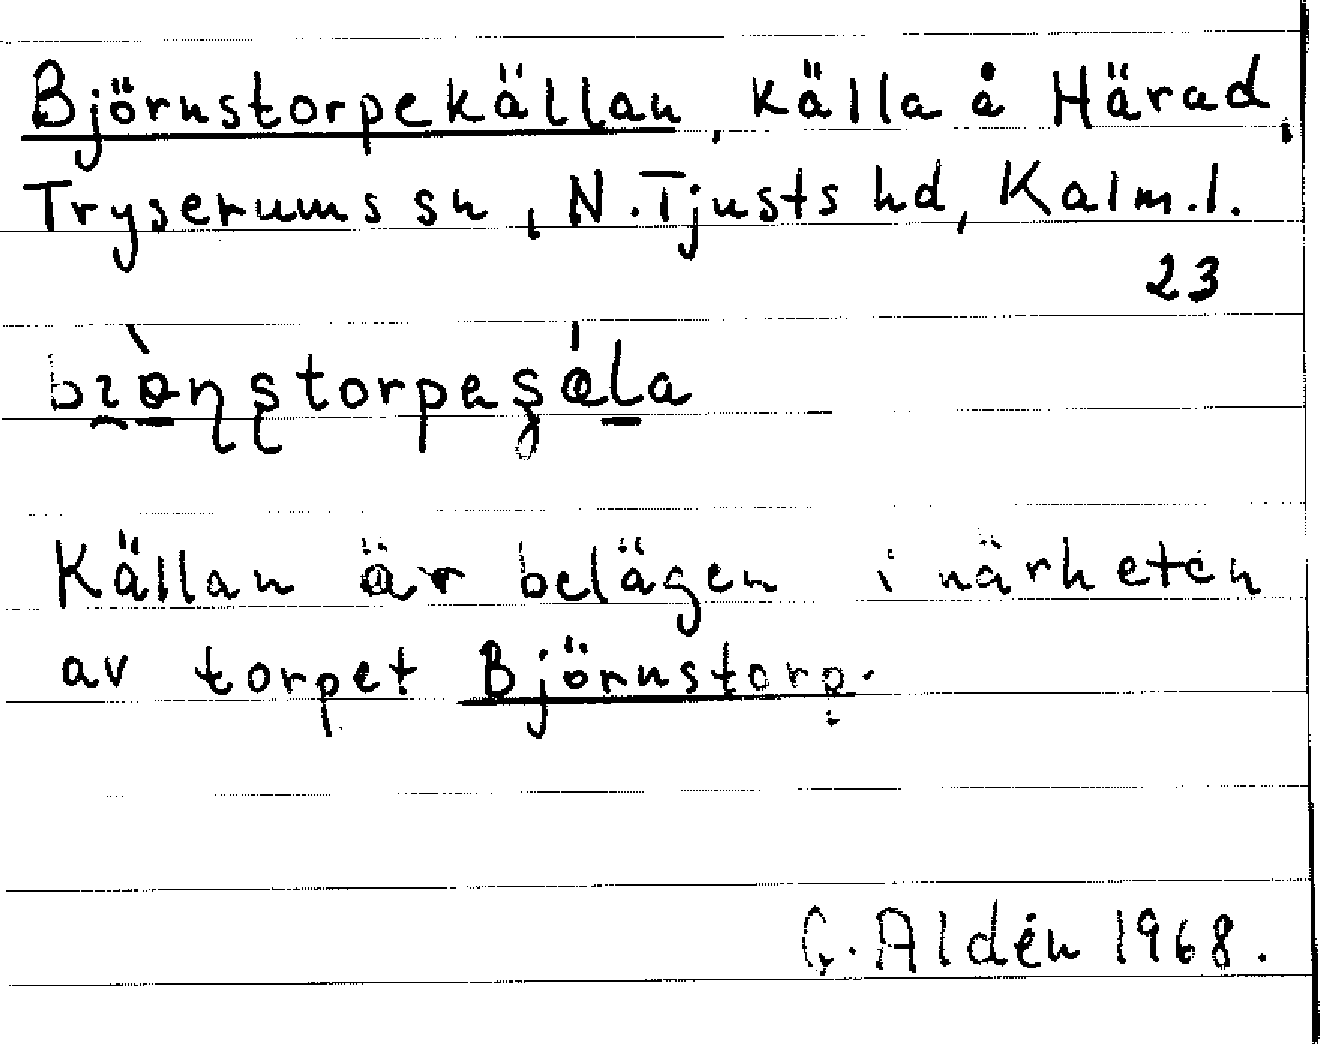 Björnstorpekällan, källa å Härad,
Tryserums sn, N. Tjusts hd, Kalm. l.
23
Källan är belägen i närheten
av torpet Björnstorp.
G. Aldén 1968.